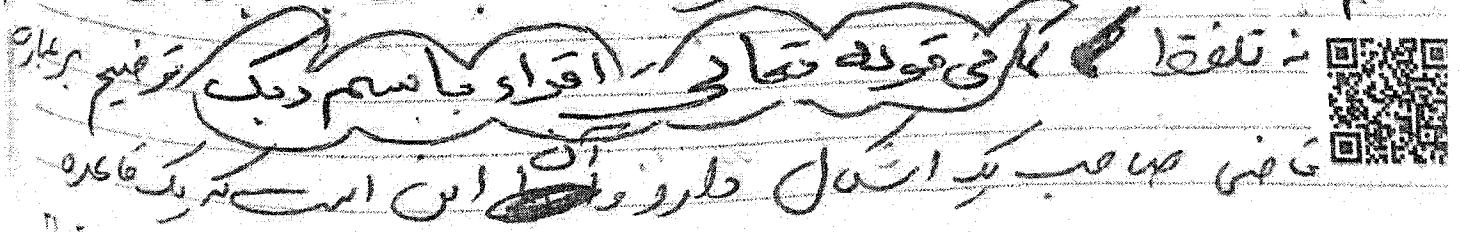 نه تلفظا كما فی قوله تعالی اقراء باسم ربک توضیح بر عباره
قاضی صاحب یک اشکال دارد و آن این است که یک قاعده